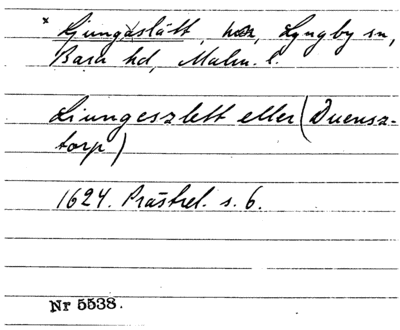 × Ljungaslätt, Lyngby sn,
Bara hd, Malm. l.
Liungeszlett eller (Duensz-
torp)
1624. Prästrel. s. 6.
Nr 5538.